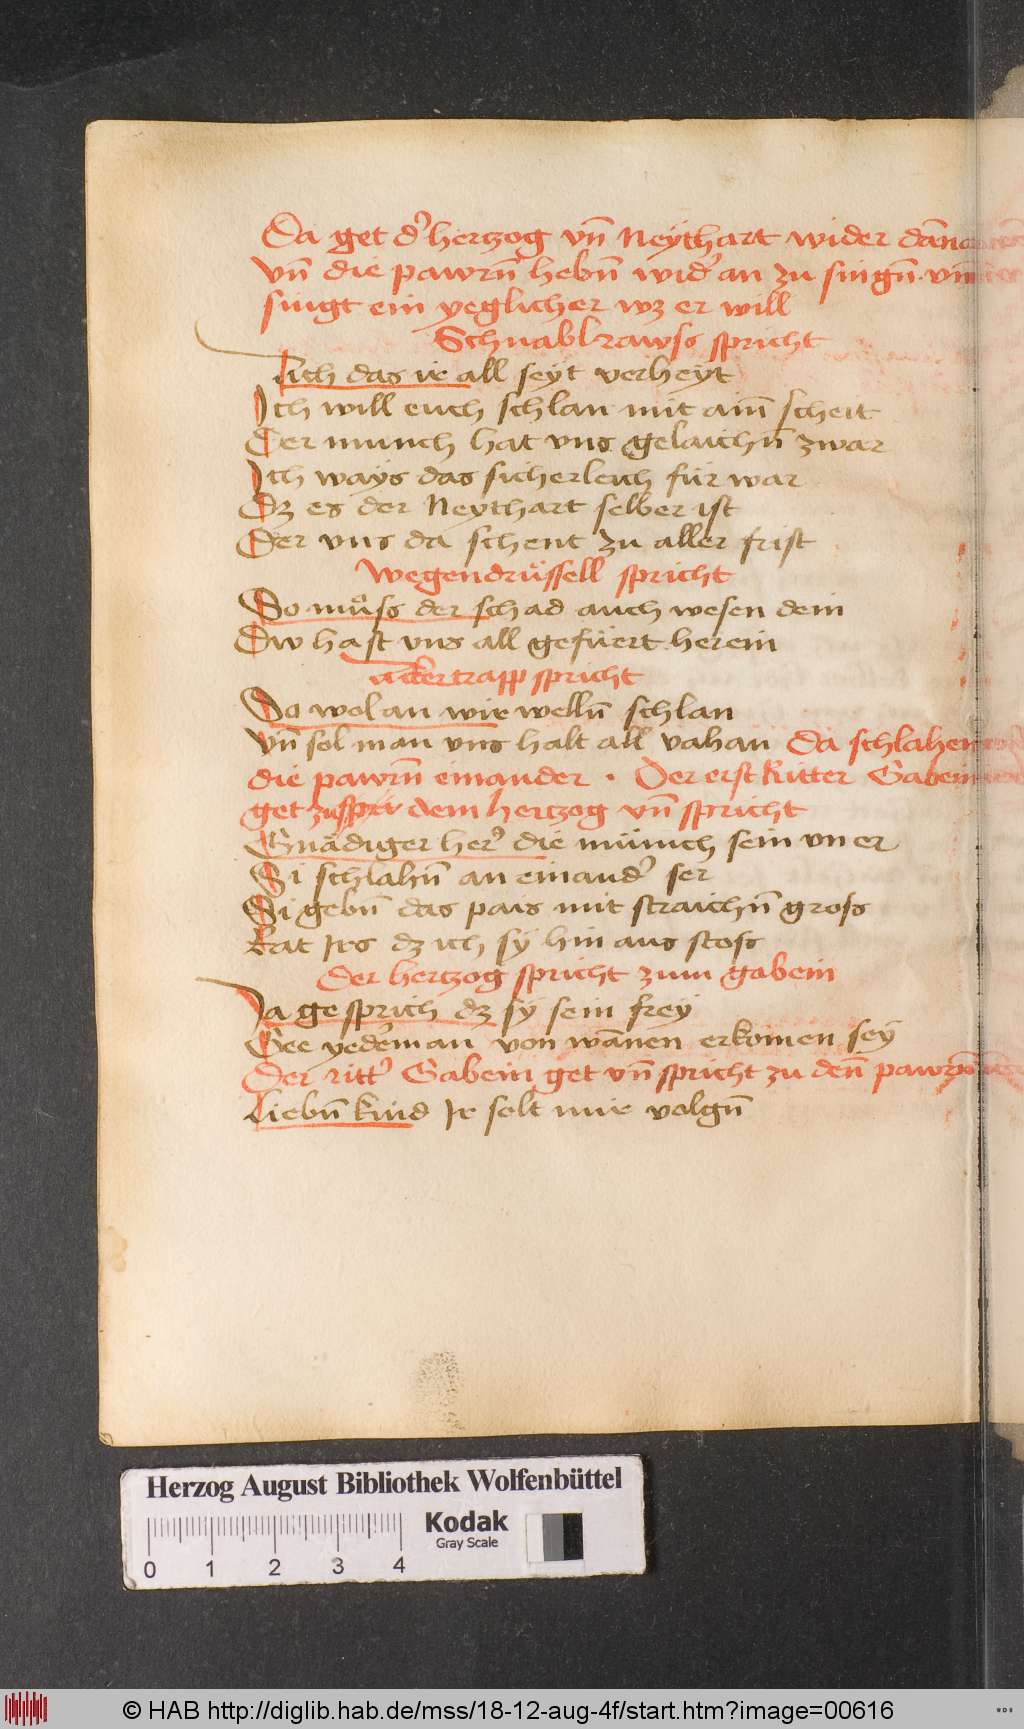 Da get dˀ hertzog vn̄ Neythart wider dānen
vn̄ die pawrn̄ hebn̄ widˀ an zu singn̄ vnd
singt ein yeglicher wz er will
Schnablrawss spricht
Aich das ir all seyt verheyt
Ich will euch schlan mit aim̄ scheit
Der munch hat vns gelaichn̄ zwar
Ich ways das sicherleich für war
Dz es der Neythart selber ist
Der vns da schent zu aller frist
Wegendrüssell spricht
So müss der schad auch wesen dein
Dw hast vns all gefüert herein
Ackertrapp spricht
So wol an wir welln̄ schlan
Vn̄ sol man vns halt all vahan Da schlahen
die pawrn̄ einander . Der erst Ritter Gabein
get zu dem hertzog vn̄ spricht
Gnädiger herˀ die münich sein vn er
Si schlahn̄ an einandˀ ser
Si gebn̄ das pais mit straichn̄ gross
Rat Irs dz ich sÿ hin aus stoss
Der hertzog spricht zum gabein
Ja ge sprich dz sÿ sein frey
Ee yedˀman von wānen er komen seÿ
Der rittˀ Gabein get vn̄ spricht zu den̄ pawrn̄
Liebn̄ kind Ir solt mir volgn̄
Herzog August Bibliothek Wolfenbüttel
Kodak
Gray Scale
0 1 2 3 4
© HAB http://diglib.hab.de/mss/18-12-aug-4f/start.htm?image=00616